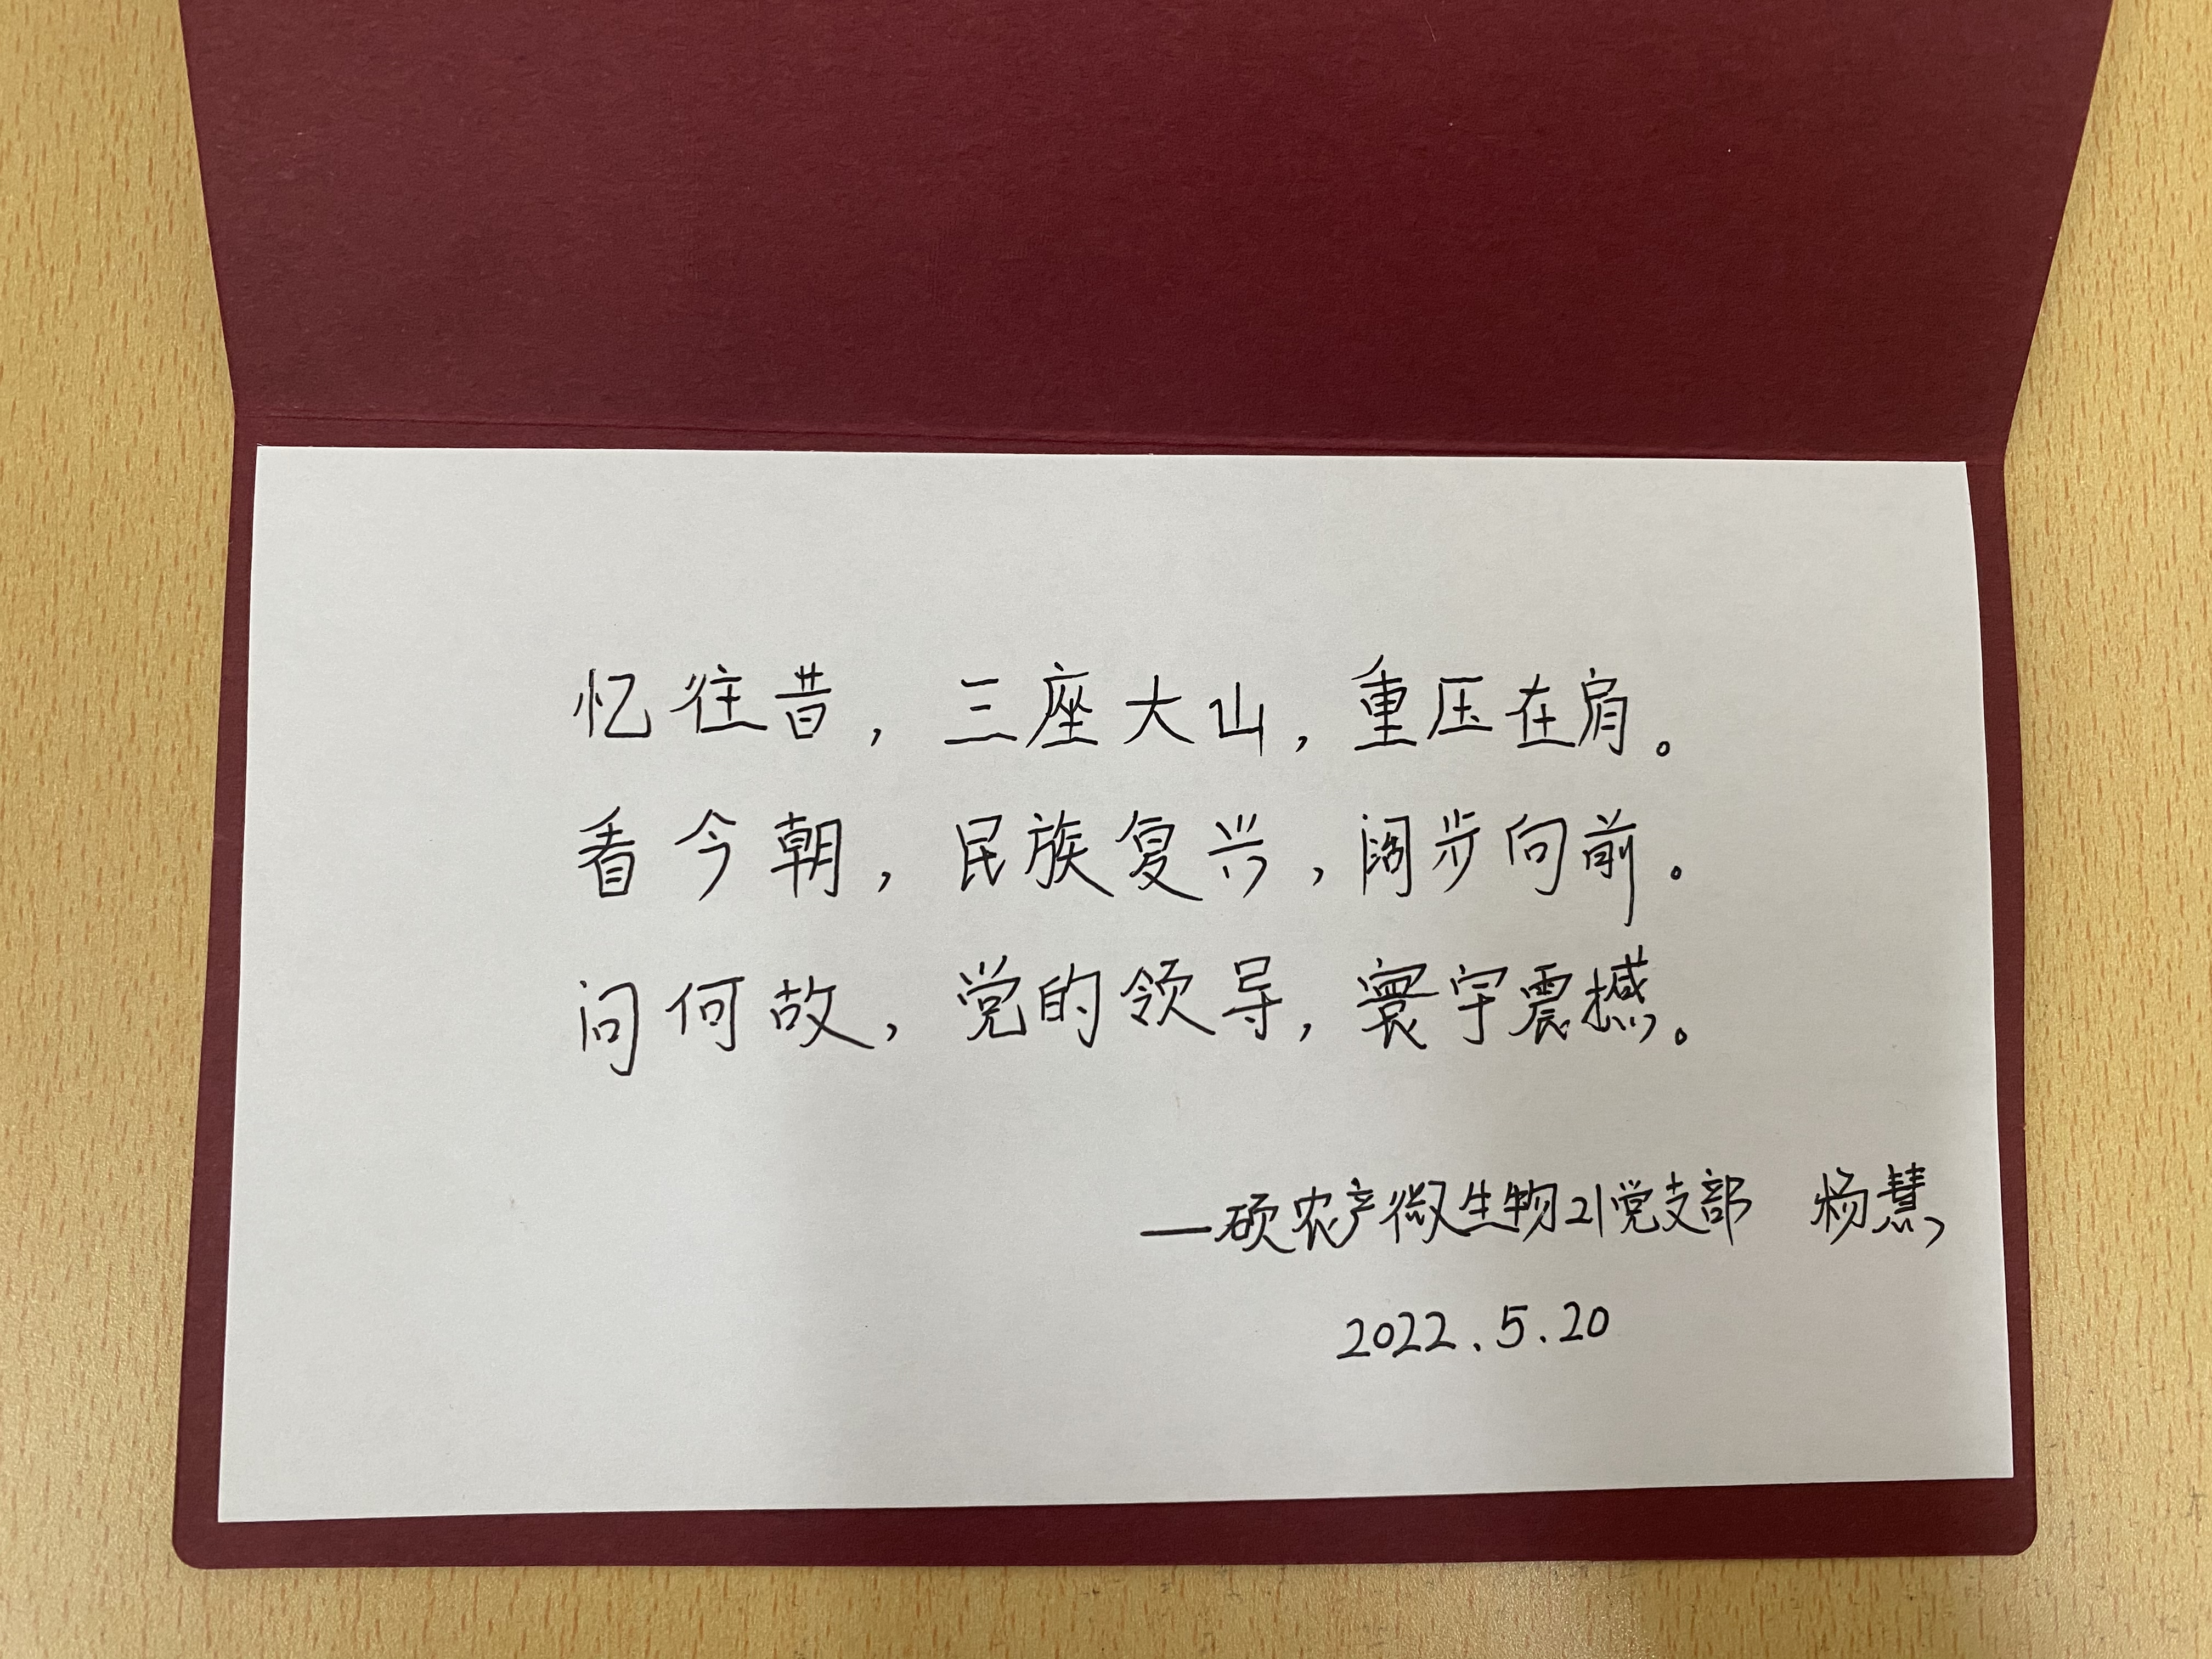 忆往昔，三座大山，重压在肩。
看今朝，民族复兴，阔步向前。
问何故，党的领导，寰宇震撼。
—硕农产微生物21党支部 杨慧
2022.5.20